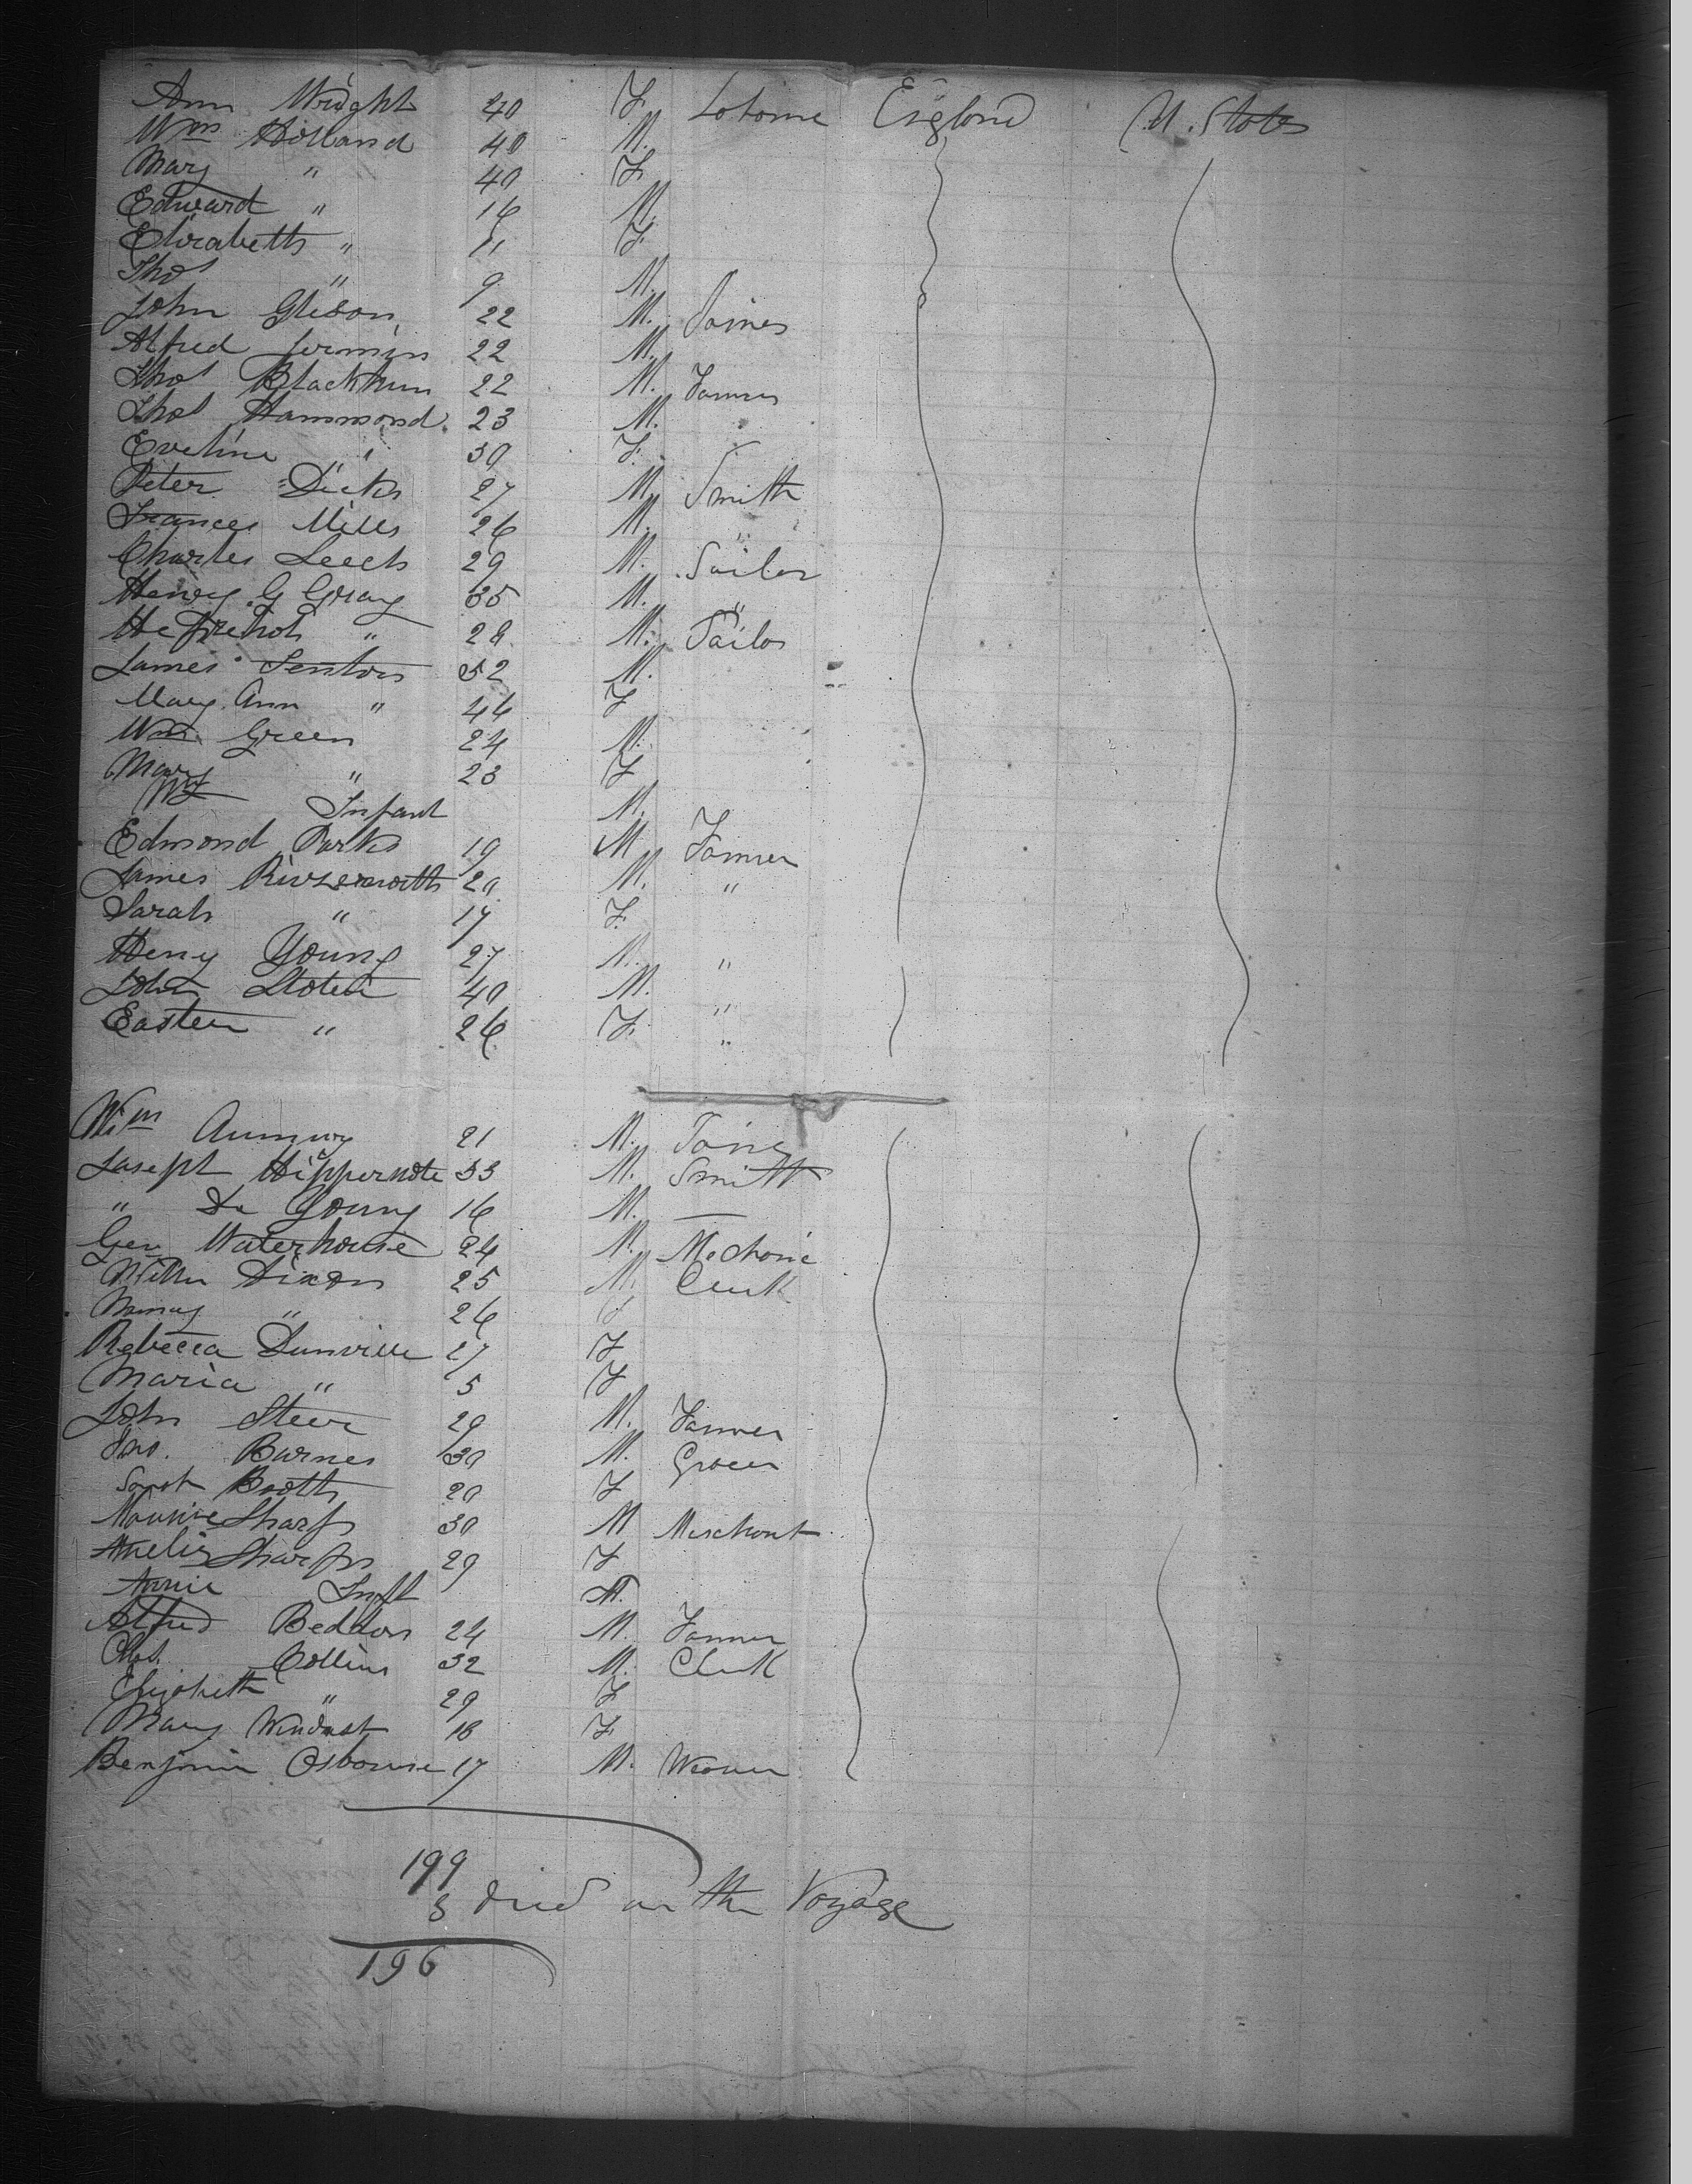 Ann Wright 40 F. England U. States
Wm Holland 40 M.
Mary " 40 F.
Edward " 16 M.
Elizabeth " 11 F.
Thos " 9 M.
John 22 M.
Alfred Jermin 22 M.
Thos Blackburn 22 M. Farmer
Thos Hammond 23 M.
Eveline " 30 F.
Peter Dicks 27 M. Smith
Frances Mills 26 M. "
Charles Leech 29 M. Sailor
Henry G Gray 35 M. "
" 28 M. Tailor
James Senton 52 M.
Mary Ann " 44 F
Wm Green 24 M.
Mary " 23 F
Wm Infant M.
Edmond Parks 19 M Farmer
James 20 M. "
Sarah " 17 F.
Henry Young 27 M. "
John 40 M. "
" 26 F. "
Wim 21 M.
Joseph 33 M. Smith
" De Young 16 M. —
Geo Waterhouse 24 M. Mechanic
Dixon 25 M. Clerk
" 26 F
Rebecca Dunville 27 F
Maria " 5 F
John Steer 29 M. Farmer
Jno. Barnes 30 M. Grocer
Sarah Booth 20 F
Sharp 30 M Merchant
Amelia Sharp 29 F
Annie Inft M.
Alfred Beddon 24 M. Farmer
Collins 32 M. Clerk
Elizabeth " 29 F
Mary 18 F
Benjamin Osbourne 17 M. Weaver
199
3 died on the Voyage
196